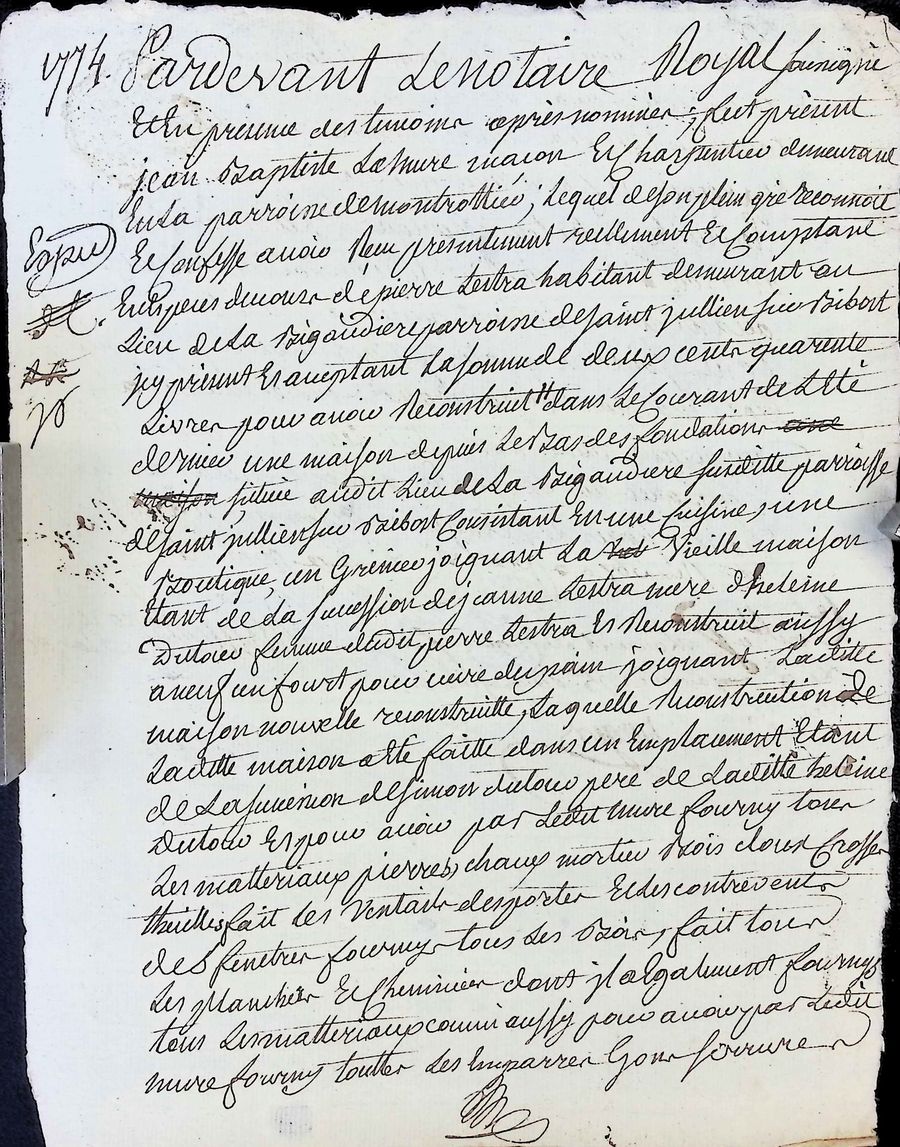 1774. Pardevant Le notaire Royal soussigné
Et En presence des temoins apres nommés ; fut présent
jean Baptiste Lamure macon Et Charpentier demeurant
En La parroisse de montrottier ; Lequel de son plein gré reconnoit
Expié
Et Confesse avoir Recu presentement reellement Et Comptant
En Especes de cours de pierre Lestra habitant demeurant au
Lieu de La Bigaudiere parroisse de saint jullien sur Bibost
jcy présent Et acceptant La somme de deux cents quarente
Livres pour avoir Reconstruit dans Le Courant de L'Eté
dernier une maison depuis Le Bas des fondations
scituée audit Lieu de La Bigaudiere susditte parroisse
de saint jullien sur Bibost Consistant En une Cuisine, une
Boutique, un Grenier joignant La Vieille maison
Etant de La succession de jeanne Lestra mere d'heleine
Dutour femme dudit pierre Lestra Et Reconstruit aussy
a neuf un fourt pour cuire du pain joignant Laditte
maison nouvelle reconstruitte, Laquelle Reconstruction de
Laditte maison a Eté faitte dans un Emplacement Etant
de La succession de Simon dutour pere de Laditte heleine
Dutour Et pour avoir par Ledit mure fourny tous
Les matteriaux pierres, chaux mortier Bois cloux Crosses
thuilles, fait Les Ventails des portes Et des contrevents
des fenetres fournys tous Les Bois, fait tous
Les planchers Et Cheminées dont jl a Egalement fournys
tous Les matteriaux comm' aussy pour avoir par Ledit
mure fourny touttes Les Emparres Gons serrures